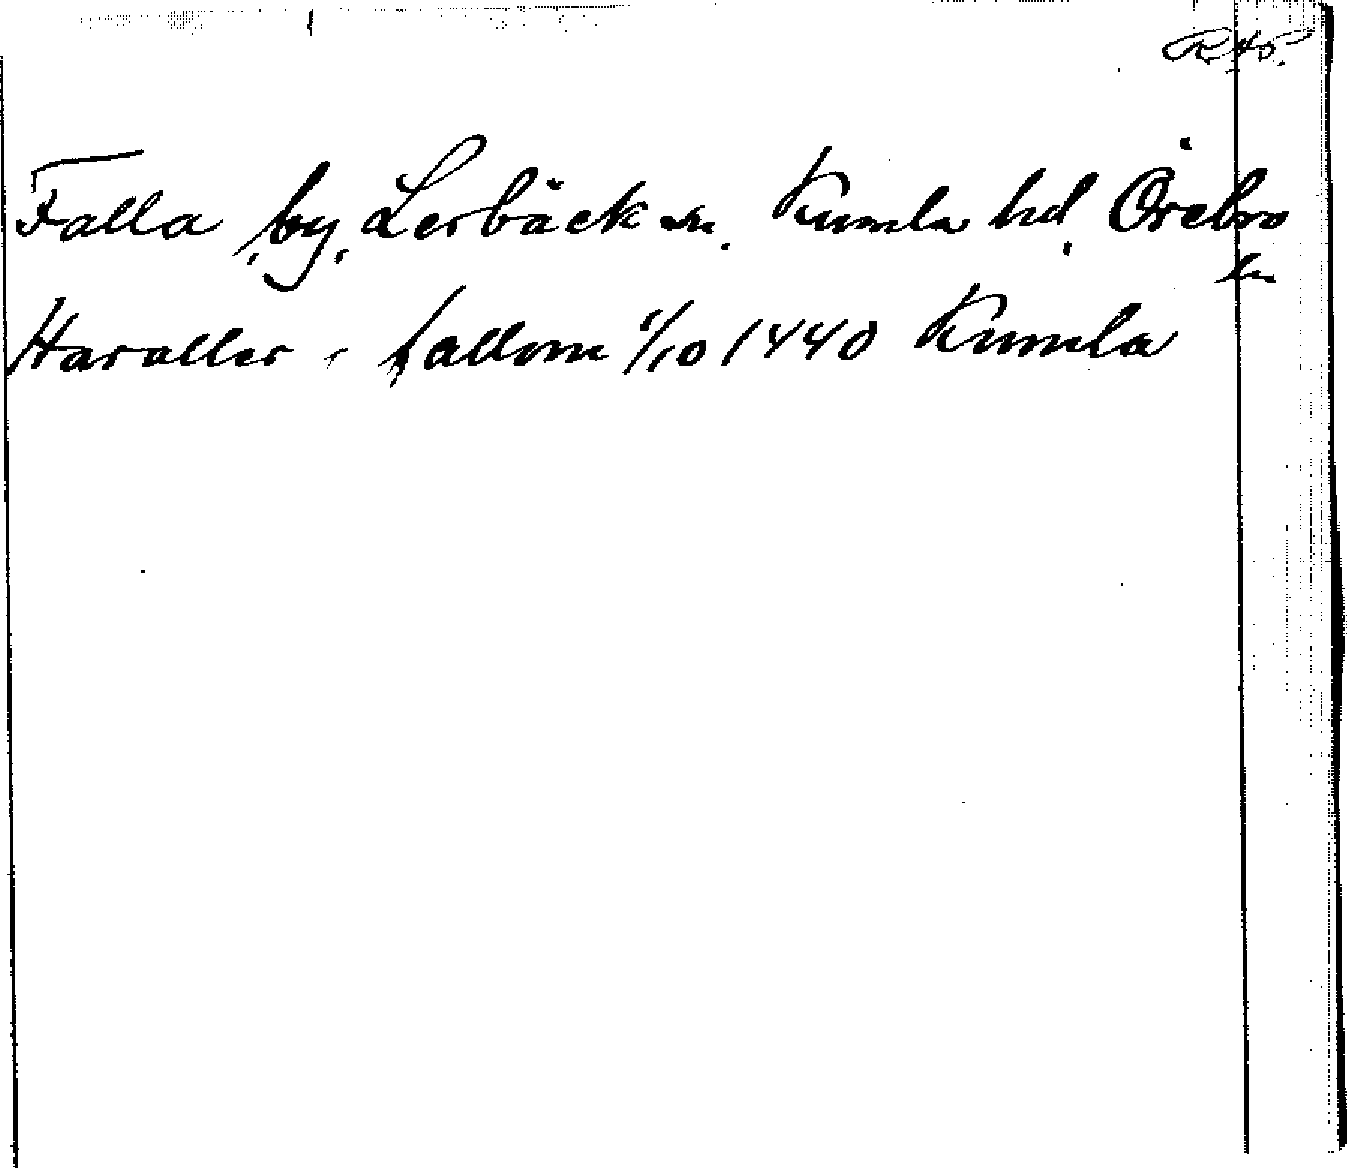 RAÖ.
Falla by, Lerbäck sn. Kumla hd, Örebro
län
Haraller i fallom 1/10 1440 Kumla